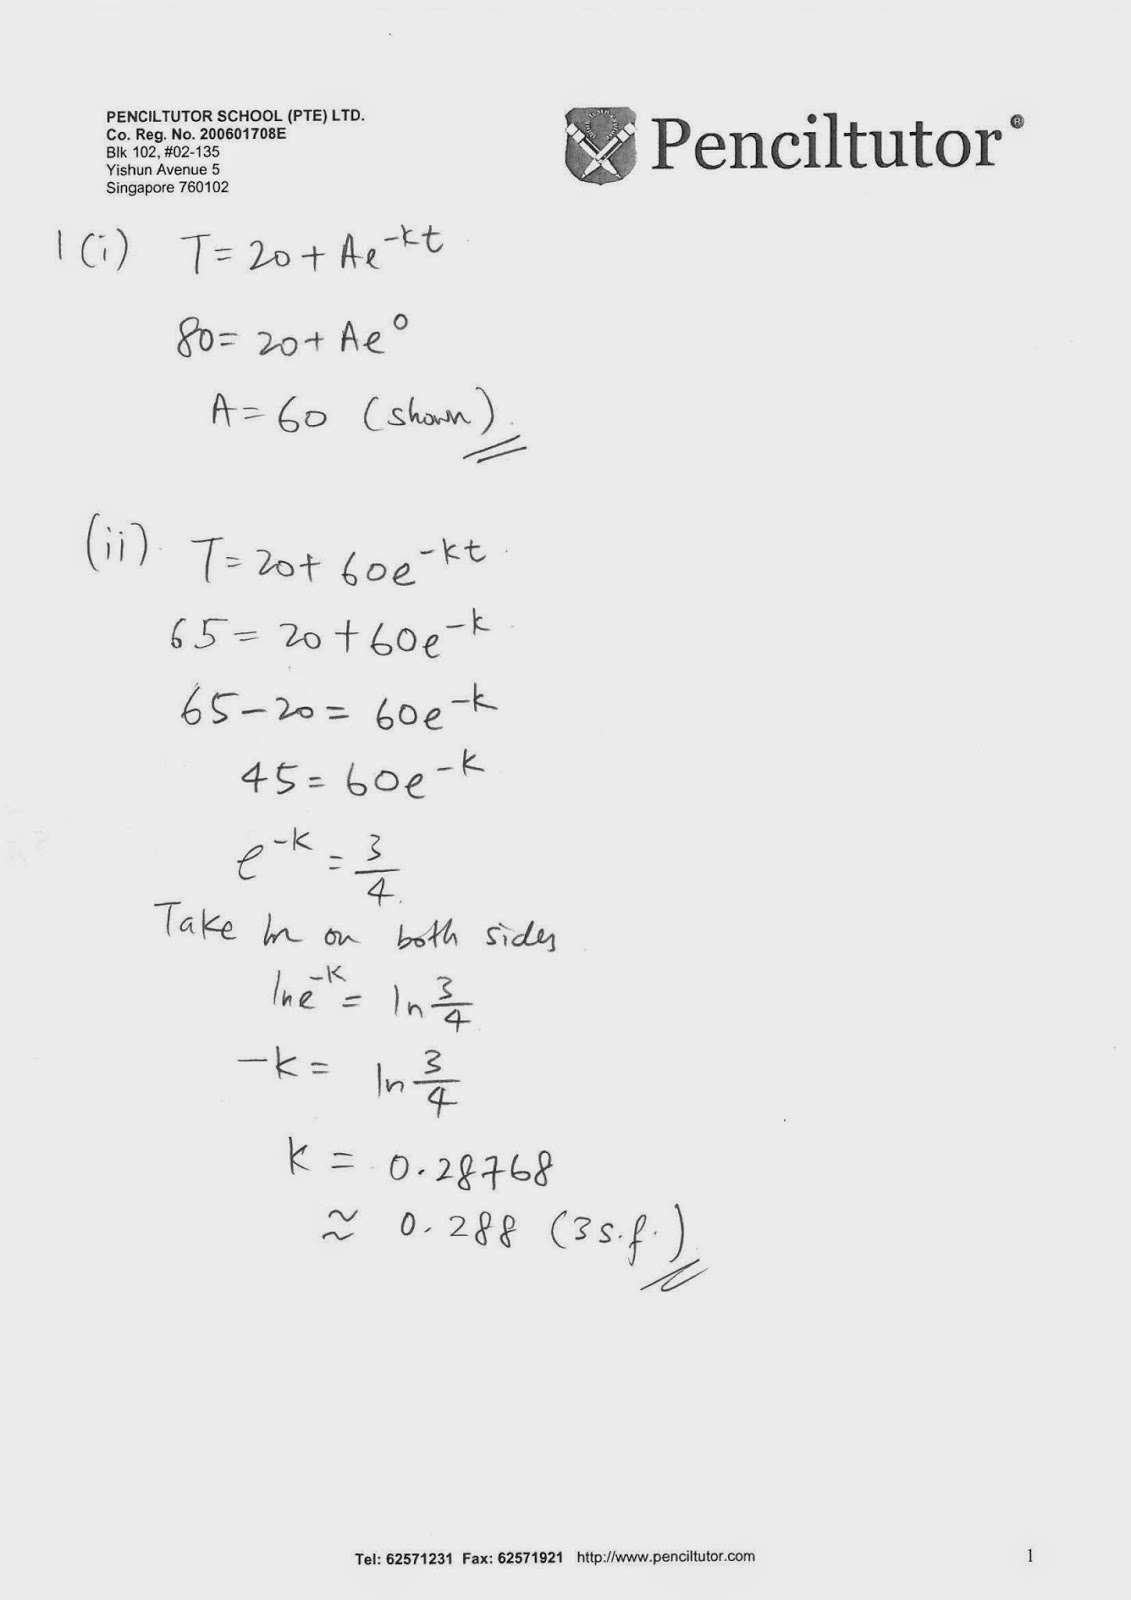 PENCILTUTOR SCHOOL (PTE) LTD.
Co. Reg. No. 200601708E
Blk 102, #02-135
Yishun Avenue 5
Singapore 760102
Penciltutor®
1(i) T = 20 + Ae^-kt
80 = 20 + Ae^0
A = 60 (shown)
(ii) T = 20 + 60e^-kt
65 = 20 + 60e^-k
65 - 20 = 60e^-k
45 = 60e^-k
e^-k = 3/4
Take ln on both sides
ln e^-k = ln 3/4
-k = ln 3/4
k = 0.28768
≈ 0.288 (3 s.f.)
Tel: 62571231 Fax: 62571921 http://www.penciltutor.com 1